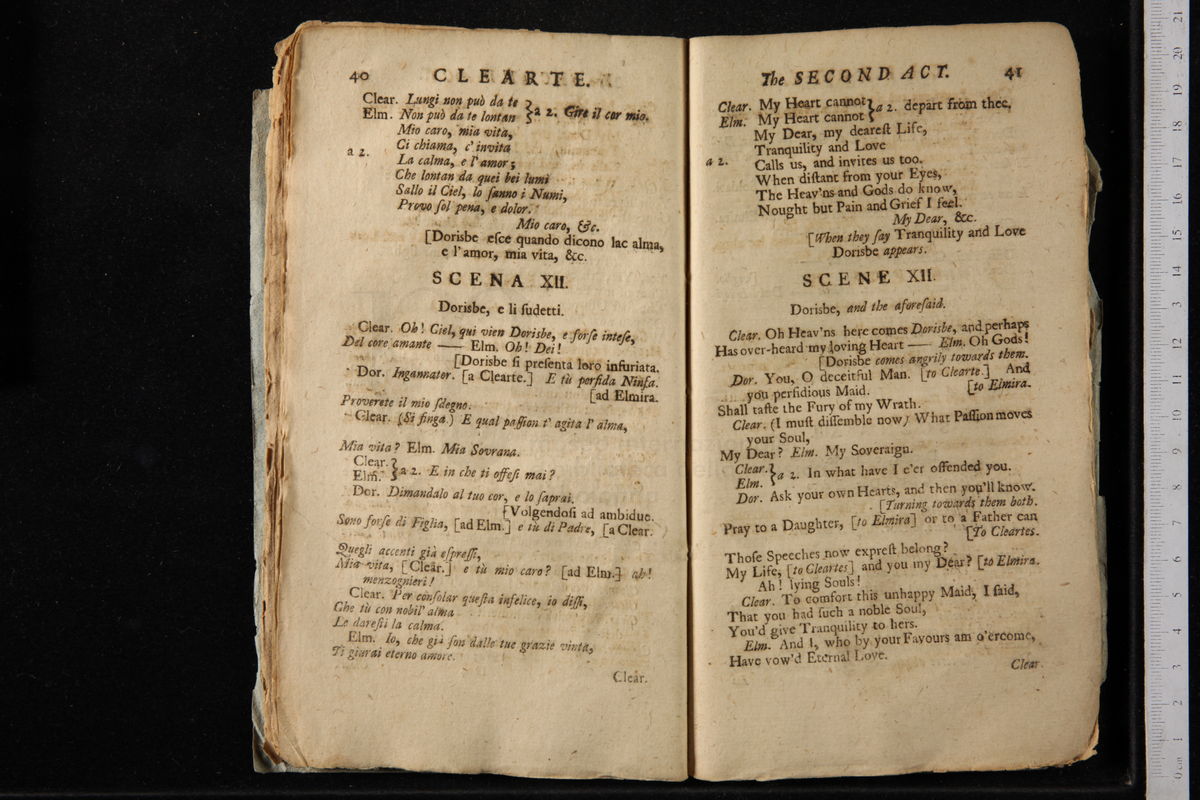 40 CLEARTE.
Clear. Lungi non può da te } a 2. Gire il cor mio.
Elm. Non può da te lontan
Mio caro, mia vita,
Ci chiama, c' invita
a 2. La calma, e l' amor;
Che lontan da quei bei lumi
Sallo il Ciel, lo ſanno i Numi,
Provo ſol pena, e dolor.
Mio caro, &c.
[Dorisbe eſce quando dicono lac alma,
e l' amor, mia vita, &c.
SCENA XII.
Dorisbe, e li ſudetti.
Clear. Oh! Ciel, qui vien Dorisbe, e forſe inteſe,
Del core amante —— Elm. Oh! Dei!
[Dorisbe ſi preſenta loro infuriata.
Dor. Ingannator. [a Clearte.] E tù perfida Ninfa.
[ad Elmira.
Proverete il mio ſdegno.
Clear. (Si finga.) E qual paſſion t' agita l' alma,
Mia vita? Elm. Mia Sovrana.
Clear. } a 2. E in che ti offeſi mai?
Elm.
Dor. Dimandalo al tuo cor, e lo ſaprai.
[Volgendoſi ad ambiduc.
Sono forſe di Figlia, [ad Elm.] e tù di Padre, [a Clear.
Quegli accenti già eſpreſſi,
Mia vita, [Clear.] e tù mio caro? [ad Elm.] ah!
menzognieri!
Clear. Per conſolar queſta infelice, io diſſi,
Che tù con nobil' alma
Le dareſti la calma.
Elm. Io, che già ſon dalle tue grazie vinta,
Ti giurai eterno amore.
Clear.
The SECOND ACT. 41
Clear. My Heart cannot } a 2. depart from thee.
Elm. My Heart cannot
My Dear, my deareſt Life,
Tranquility and Love
a 2. Calls us, and invites us too.
When diſtant from your Eyes,
The Heav'ns and Gods do know,
Nought but Pain and Grief I feel.
My Dear, &c.
[When they ſay Tranquility and Love
Dorisbe appears.
SCENE XII.
Dorisbe, and the aforeſaid.
Clear. Oh Heav'ns here comes Dorisbe, and perhaps
Has over-heard my loving Heart —— Elm. Oh Gods!
[Dorisbe comes angrily towards them.
Dor. You, O deceitful Man. [to Clearte.] And
you perfidious Maid. [to Elmira.
Shall taſte the Fury of my Wrath.
Clear. (I muſt diſſemble now) What Paſſion moves
your Soul,
My Dear? Elm. My Soveraign.
Clear. } a 2. In what have I e'er offended you.
Elm.
Dor. Ask your own Hearts, and then you'll know.
[Turning towards them both.
Pray to a Daughter, [to Elmira] or to a Father can
[To Cleartes.
Thoſe Speeches now expreſt belong?
My Life, [to Cleartes] and you my Dear? [to Elmira.
Ah! lying Souls!
Clear. To comfort this unhappy Maid, I ſaid,
That you had ſuch a noble Soul,
You'd give Tranquility to hers.
Elm. And I, who by your Favours am o'ercome,
Have vow'd Eternal Love.
Clear.
0 cm 1 2 3 4 5 6 7 8 9 10 11 12 13 14 15 16 17 18 19 20 21